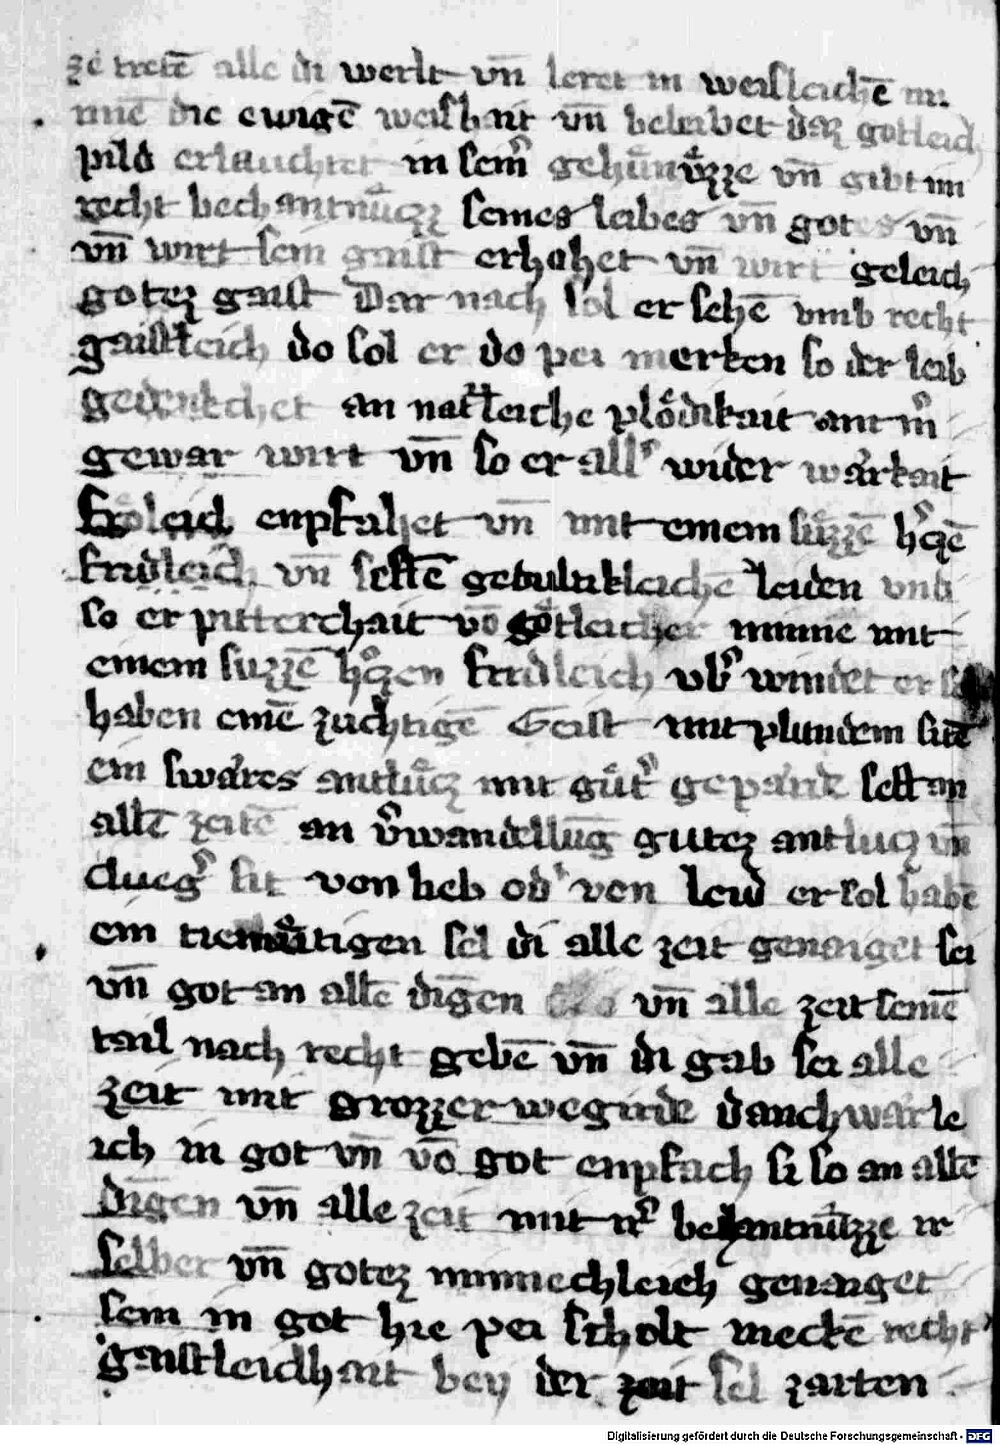 ze tretē alle di werlt vn̄ leret in weisleichē in
mīē die ewigē weishait vn̄ beleibet daz gotleich
pild erlauchtet in seinͬ gehuͤnuͤzze vn̄ gibt im
recht bechantnuͤzz seines leibes vn̄ gotes vn̄
vn̄ wirt sein gaist erhohet vn̄ wirt geleich
gotez gaist Dar nach sol er sehē vmb recht
gaistleich do sol er do pei merken so der leib
gedrukchet an natͬleiche ploͤdikait
gewar wirt vn̄ so er allͬ wider waͤrkait
froͤleich enpfahet vn̄ mit einem suͤzzē hͬczē
fridleich vn̄ senftē gedultikleichē leiden vnd
so er pitterchait vō goͤtleicher minne mit
einem suzzē hͬczen fridleich vbͬ windet er sol
haben einē zuchtigē Geist mit plundem sitē
ein swaͤres antluͤcz mit guͤtͬ gepaͤrde selt an
allē zeitē an vͬwandellūg gutez antlucz vn̄
cluegͬ sit von lieb odͬ von leid er sol habē
ein tiemuͤtigen sel di alle zeit genaiget sei
vn̄ got an allē dīgen vn̄ alle zeit seinē
tail nach recht gebē vn̄ di gab sei alle
zeit mit grozzer wegirde danchwaͤrle
ich in got vn̄ vō got enpfach si so an allē
dīgen vn̄ alle zeit mit irͬ bechantnuͤzze ir
selber vn̄ gotez minnechleich genaiget
sein in got hie pei scholt meckē recht
gaistleichait bey der zeit sel zarten